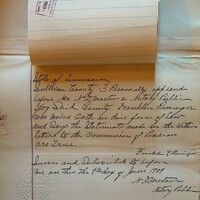 State of Tennessee
Sullivan County } Personally appeared
before me N. D. Morton a Notary Public
for Said County Franklin
who makes oath in due form of law
and Says the Statements made in the within
letter to the Commissioner of Pensions
are True.
Franklin
Sworn and Subscribed to before
me on this the day of June 1909
N. D. Morton
Notary Public